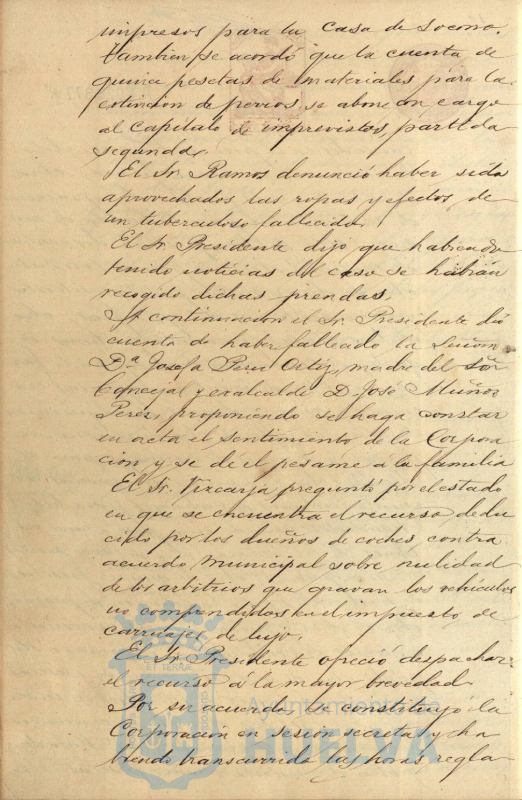 impresos para la Casa de Socorro.
Tambien se acordó que la cuenta de
quince pesetas de materiales para la
extincion de perros, se abone con cargo
al Capitulo de imprevistos, partida
segunda.
El Sr. Ramos denunció haber sido
aprovechados las ropas y efectos de
un tuberculoso fallecido.
El Sr. Presidente dijo que habiendo
tenido noticias del caso se habian
recogido dichas prendas.
A continuacion el Sr. Presidente dió
cuenta de haber fallecido la Señora
Dª Josefa Perez Ortiz, madre del Sõr
Concejal y exalcalde D. José Muñoz
Perez, proponiendo se haga constar
en acta el sentimiento de la Corpora
cion y se dé el pésame á la familia
El Sr. Vizcarya preguntó por el estado
en que se encuentra el recurso dedu
cido por los dueños de coches contra
acuerdo Municipal sobre nulidad
de los arbitrios que gravan los vehículos
no comprendidos en el impuesto de
carruajes de lujo.
El Sr. Presidente ofreció despachar
el recurso á la mayor brevedad
Por su acuerdo, se constituyó la
Corporacion en sesion secreta y ha
biendo transcurrido las horas regla
Ayuntamiento de
HUELVA